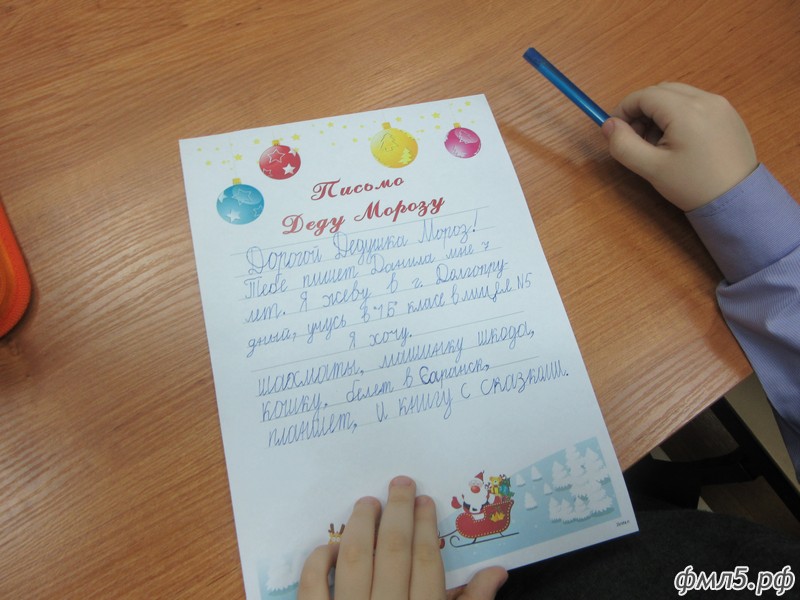 Письмо
Деду Морозу
Дорогой Дедушка Мороз!
Тебе пишет Данила мне 7
лет. Я жеву в г. Долгопру-
дный, учусь в 1"Б" класе в лицее №5
Я хочу.
шахматы, машинку шкода,
кошку, белет в Саранск,
планшет, и книгу с сказками.
фмл5.рф